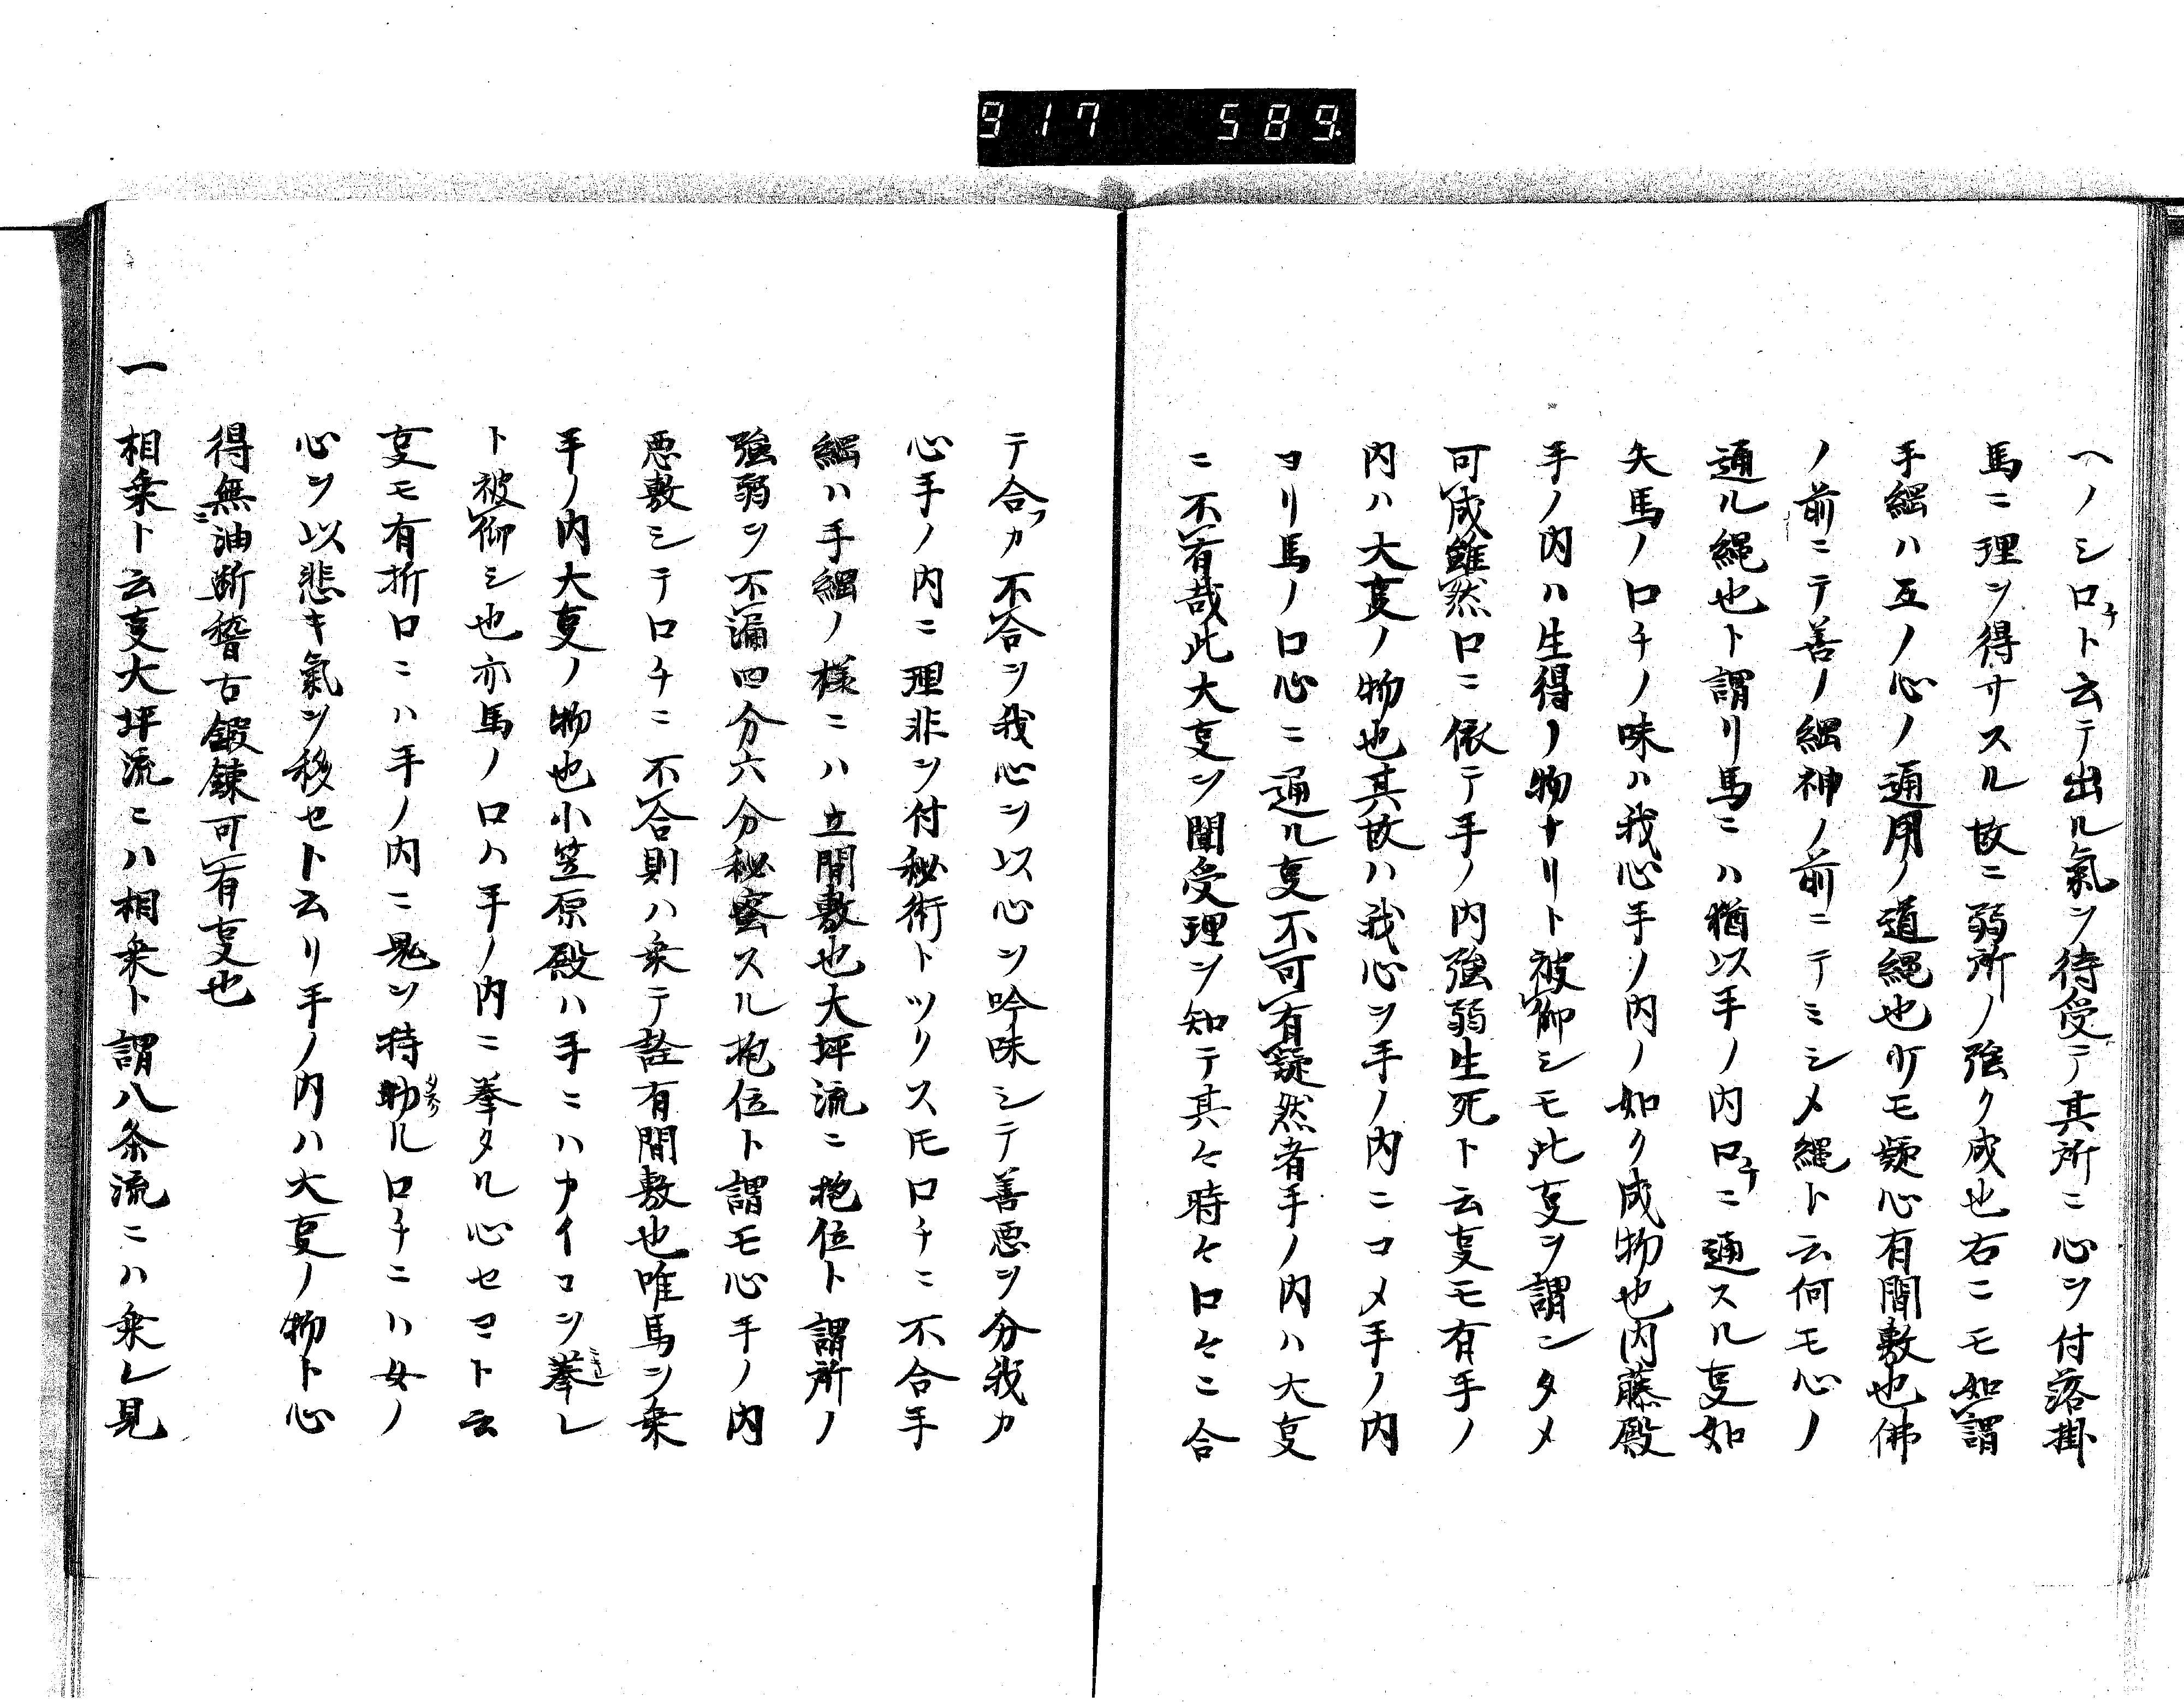 917 589
ヘノシ口チト云テ出ル氣ヲ待受テ其所ニ心ヲ付落掛
馬ニ理ヲ得サスル故ニ弱所ノ強ク成也右ニモ如謂
手綱ハ互ノ心ノ通用ノ道縄也ケモ疑心有間敷也佛
ノ前ニテ善ノ綱神ノ前ニテミシメ縄ト云何モ心ノ
通ル縄也ト謂リ馬ニハ猶以手ノ内口チニ通スル叓如
矢馬ノ口チノ味ハ我心手ノ内ノ如ク成物也内藤殿
手ノ内ハ生得ノ物ナリト被仰シモ此叓ヲ謂ンタメ
可成雖然口ニ依テ手ノ内強弱生死ト云叓モ有手ノ
内ハ大叓ノ物也其故ハ我心ヲ手ノ内ニコメ手ノ内
コリ馬ノ口心ニ通ル叓不可有疑然者手ノ内ハ大叓
ニ不有哉此大叓ヲ聞受理ヲ知テ其々時々口々ニ合
テ合フカ不合ヲ我心ヲ以心ヲ吟味シテ善悪ヲ分我カ
心手ノ内ニ理非ヲ付秘術トツリスモ口チニ不合手
綱ハ手綱ノ様ニハ立間敷也大坪流ニ抱位ト謂所ノ
強弱ヲ不漏四分六分秘蜜スル抱位ト謂モ心手ノ内
悪敷シテ口チニ不合則ハ乗テ詮有間敷也唯馬ヲ乗
手ノ内大叓ノ物也小笠原殿ハ手ニハカイコヲ拳レ
ト被仰シ也亦馬ノ口ハ手ノ内ニ拳タル心セヨト云
叓モ有折口ニハ手ノ内ニ鬼ヲ持助ル口チニハ女ノ
心ヲ以悲キ氣ヲ移セト云リ手ノ内ハ大叓ノ物ト心
得無ニ油断稽古鍛錬可有叓也
一 相乗ト云叓大坪流ニハ相乗ト謂八条流ニハ乗レ見